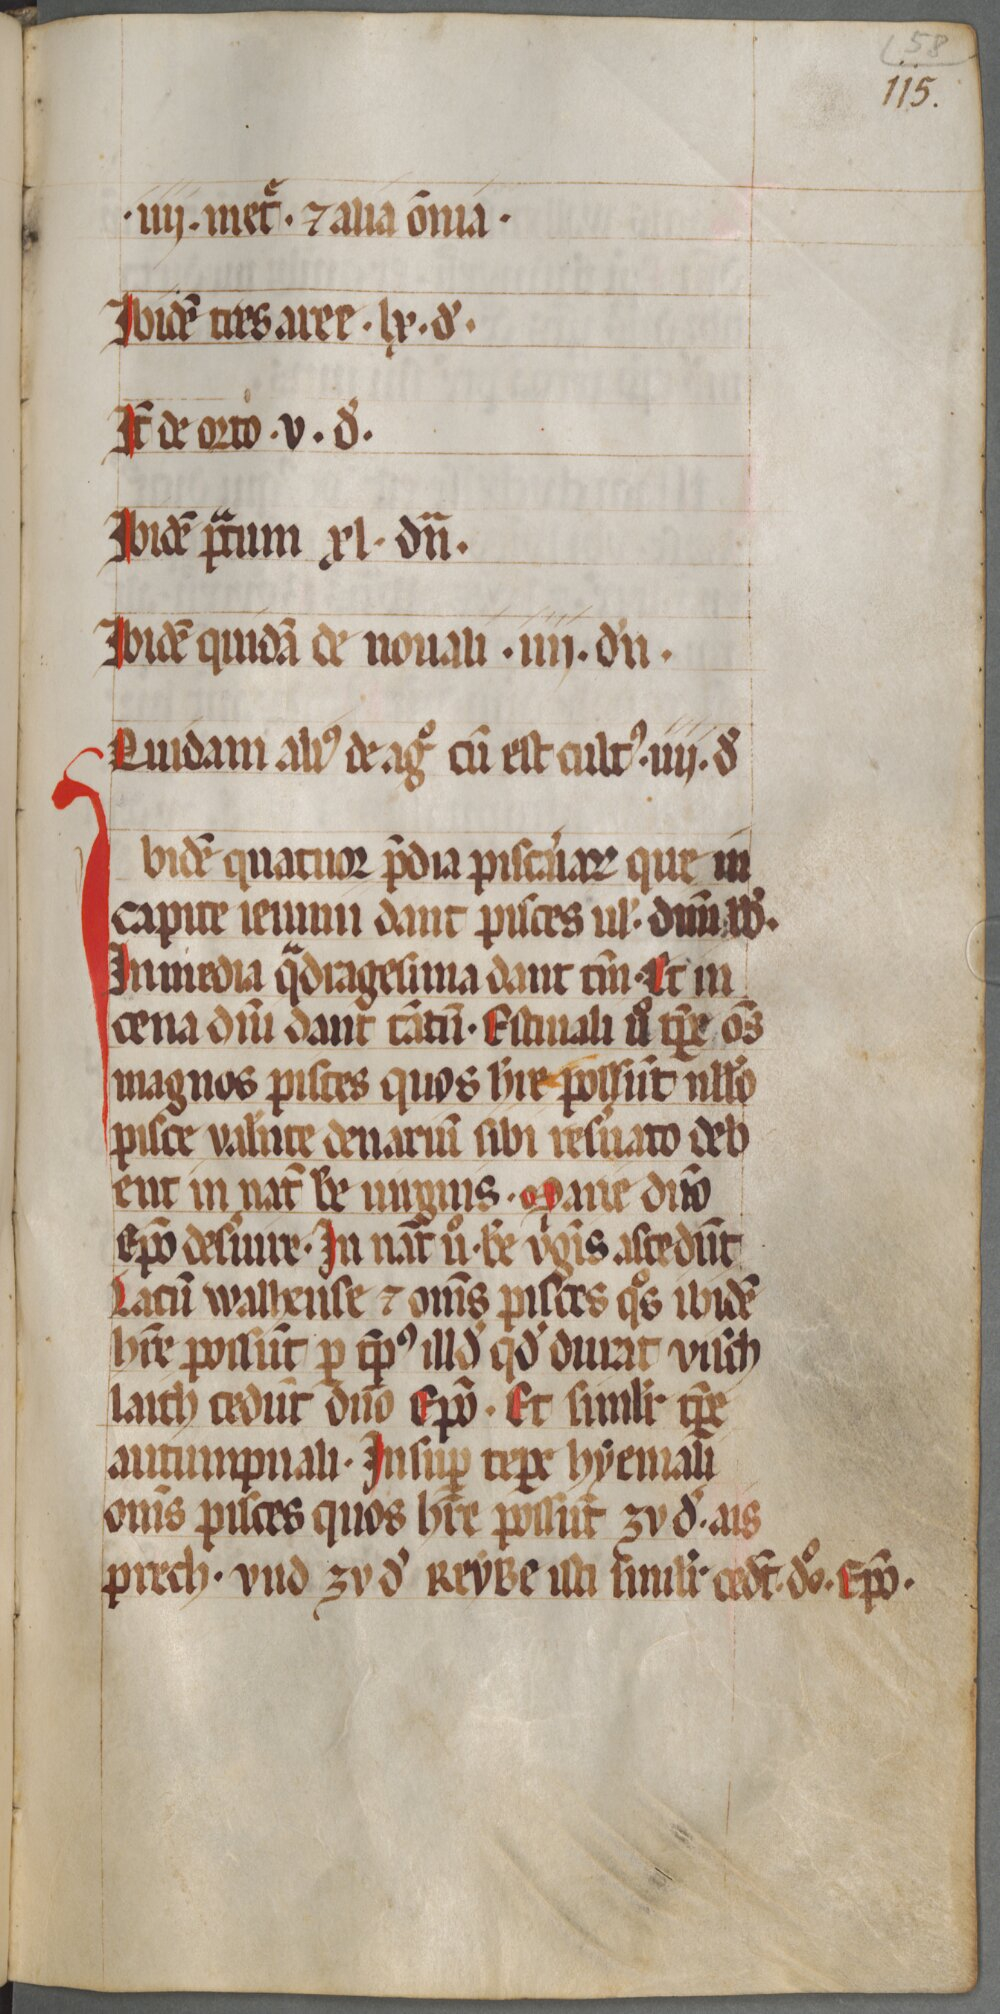 58
115.
·iiij· met̄e· ⁊ alia ōnia·
Ibidē tres aree ·lx· đ·
It̄ de orto ·v· đ·
Ibidē p̄tum xl· dn̄·
Ibidē quidā de nouali ·iiij· dn̄·
Quidam aliꝰ de agͦ cū est cultꝰ ·iiij· đ
Ibidē quatuor p̄dia piscatar̄ que in
capite ieiunii dant pisces
In media qͣdragesima dant tm̄· Et in
cena dn̄i dant tātū· Estiuali uͦ tp̄e om̄s
magnos pisces quos hr̄e possūt nllͦo
pisce valn̄te denariū sibi res̄uato deb
ent in nat̄ be uirginis· Marie dn̄o
Ep̄o des̄uire· In nat̄ uͦ· be v̄gīs ascedūt
Lacū walhense ⁊ om̄s pisces qͦs ibidē
hr̄e possūt p tp̄ꝰ illđ qđ durat visch
laich cedūt dn̄o Ep̄o· Et simlr̄ tp̄e
autumpnali· Insup̄ tēpr hẏemali
om̄s pisces quos hr̄e possūt zv đ· ais
prech· vnd zv đ Reẏbe isti simlr̄ cedt̄· dͦo· Ep̄o·